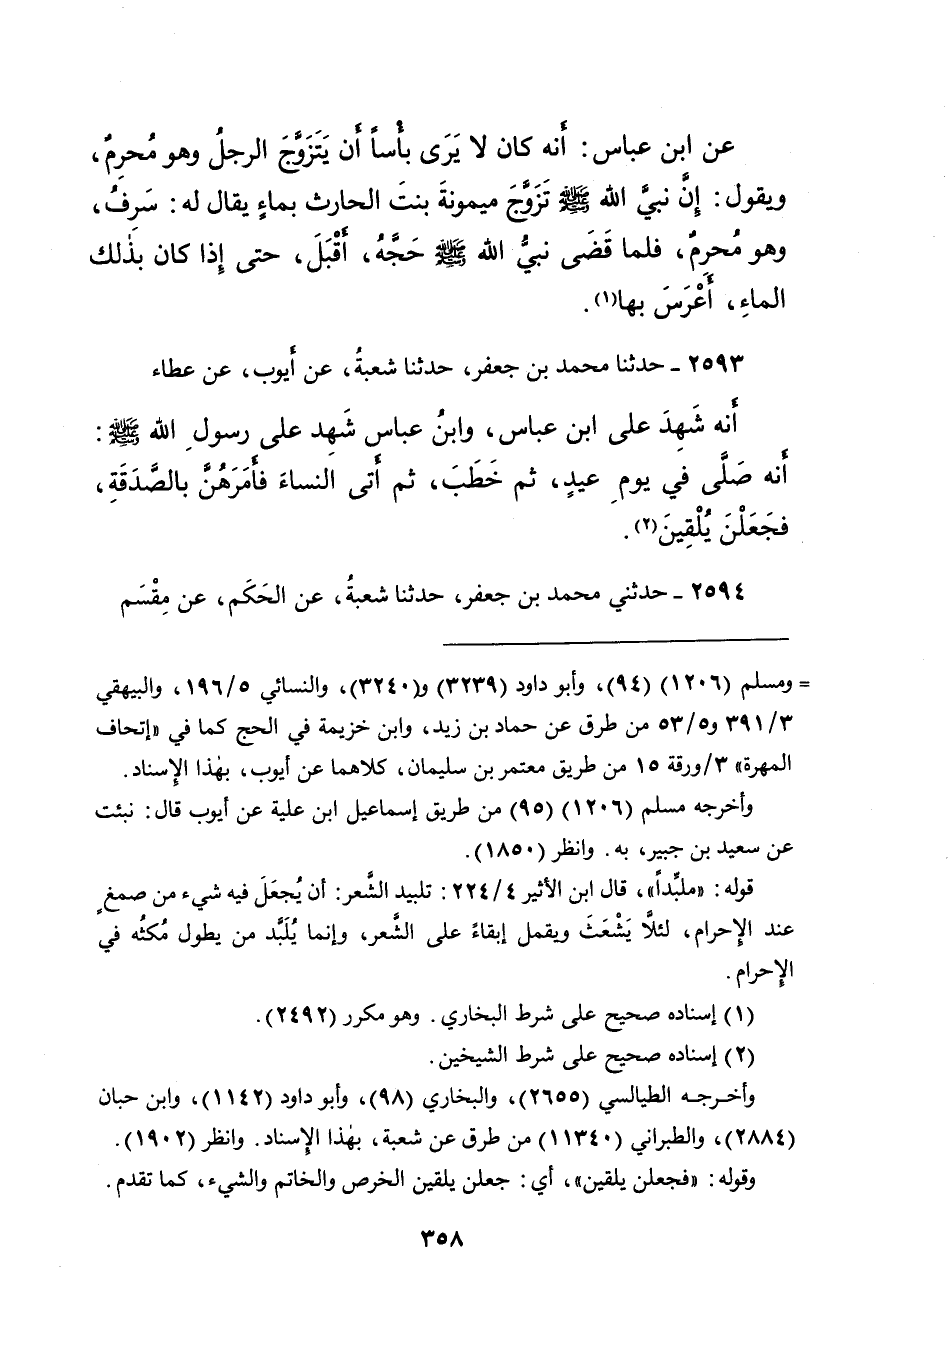 عن ابن عباس: أَنه كان لا يَرَى بأْساً أَن يَتَزَوَّجَ الرجلُ وهو مُحرِمٌ،
ويقول: إِنَّ نبيَّ الله ﷺ تَزَوَّجَ ميمونةَ بنتَ الحارث بماءٍ يقال له: سَرِفُ،
وهو مُحرِمٌ، فلما قَضَى نبيُّ الله ﷺ حَجَّهُ، أَقْبَلَ، حتى إِذا كان بذٰلك
الماءِ، أَعْرَسَ بها(١).
٢٥٩٣ ـ حدثنا محمد بن جعفر، حدثنا شعبةُ، عن أَيوب، عن عطاء
أَنه شَهِدَ على ابن عباس، وابنُ عباس شَهِد على رسولِ الله ﷺ:
أَنه صَلَّى في يومِ عيدٍ، ثم خَطَبَ، ثم أَتى النساءَ فأَمَرَهُنَّ بالصَّدَقَةِ،
فجَعَلْنَ يُلْقِينَ(٢).
٢٥٩٤ ـ حدثني محمد بن جعفر، حدثنا شعبةُ، عن الحَكَم، عن مِقْسَم
= ومسلم (١٢٠٦) (٩٤)، وأبو داود (٣٢٣٩) و(٣٢٤٠)، والنسائي ١٩٦/٥، والبيهقي
٣٩١/٣ و٥٣/٥ من طرق عن حماد بن زيد، وابن خزيمة في الحج كما في «إتحاف
المهرة» ٣/ورقة ١٥ من طريق معتمر بن سليمان، كلاهما عن أيوب، بهٰذا الإسناد.
وأخرجه مسلم (١٢٠٦) (٩٥) من طريق إسماعيل ابن علية عن أيوب قال: نبئت
عن سعيد بن جبير، به. وانظر (١٨٥٠).
قوله: «ملبِّداً»، قال ابن الأثير ٢٢٤/٤: تلبيد الشَّعر: أن يُجعَلَ فيه شيء من صمغٍ
عند الإحرام، لئلَّا يَشْعَثَ ويقمل إبقاءً على الشَّعر، وإنما يُلَبَّد من يطول مُكثُه في
الإحرام.
(١) إسناده صحيح على شرط البخاري. وهو مكرر (٢٤٩٢).
(٢) إسناده صحيح على شرط الشيخين.
وأخرجه الطيالسي (٢٦٥٥)، والبخاري (٩٨)، وأبو داود (١١٤٢)، وابن حبان
(٢٨٨٤)، والطبراني (١١٣٤٠) من طرق عن شعبة، بهٰذا الإسناد. وانظر (١٩٠٢).
وقوله: «فجعلن يلقين»، أي: جعلن يلقين الخرص والخاتم والشيء، كما تقدم.
٣٥٨